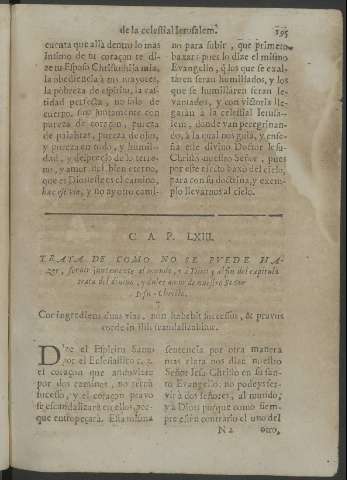 de la celestial Ierusalem. 195
cuenta que allà dentro lo mas
intimo de tu coraçon te di-
ze tu Esposo Christo, hija mia,
la obediencia à tus mayores,
la pobreza de espiritu, la cas-
tidad perfecta, no solo de
cuerpo, sino juntamente con
pureza de coraçon, pureza
de palabras, pureza de ojos,
y pureza en todo, y humil-
dad, y desprecio de lo terre-
no, y amor del bien eterno,
que es Dios: este es el camino,
hac est via, y no ay otro cami-
no para subir, que primero
baxar: pues lo dize el mismo
Evangelio, q̃ los que se exal-
taren seran humillados, y los
que se humillaren seran le-
vantados, y con victoria lle-
garàn à la celestial Ierusa-
lem, donde van peregrinan-
do, à la qual nos guia, y ense-
ña este divino Doctor Iesu-
Christo nuestro Señor, pues
por este cierto baxò del cielo,
para con su doctrina, y exem-
plo llevarnos al cielo.
CAP. LXIII.
TRATA DE COMO NO SE PUEDE HA-
zer, servir juntamente al mundo, y à Dios; y al fin del capitulo
trata del divino, y dulce amor de nuestro Señor
Iesu-Christo.
Cor ingrediens duas vias, non habebit successus, & pravus
corde in illis scandalizabitur.
DIze el Espiritu Santo
por el Eclesiastico c. 2.
el coraçon que anduviere
por dos caminos, no tendrà
sucesso, y el coraçon pravo
se escandalizarà en ellos, por-
que entropeçarà. Esta misma
sentencia por otra manera
mas clara nos dize nuestro
Señor Iesu Christo en su san-
to Evangelio: no podeys ser-
vir à dos señores, al mundo,
y à Dios porque como siem-
pre estèn contrarios el uno del
N 2 otro,